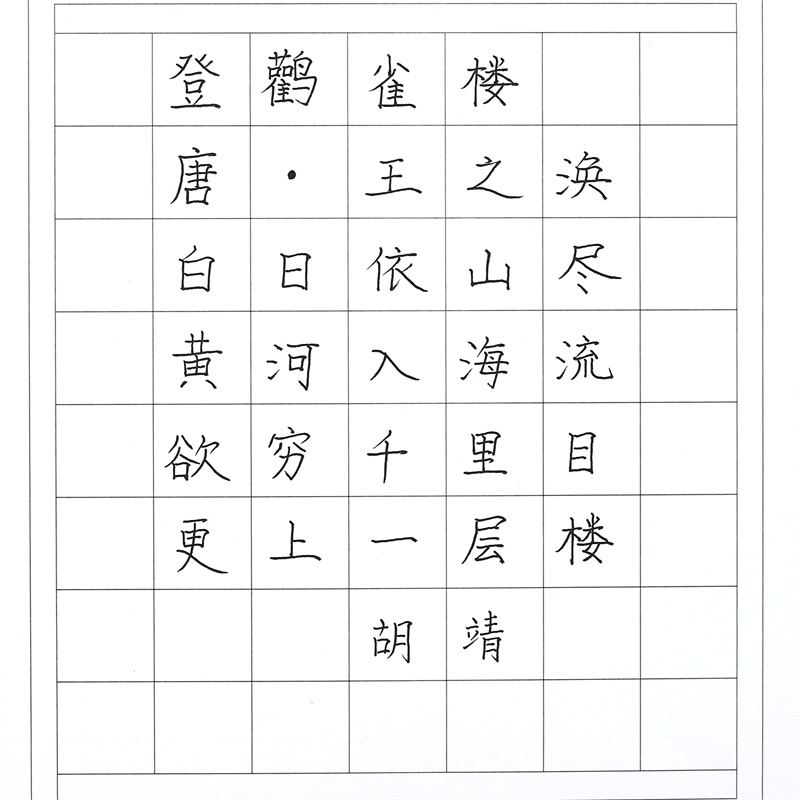 登鹳雀楼
唐·王之涣
白日依山尽
黄河入海流
欲穷千里目
更上一层楼
胡靖